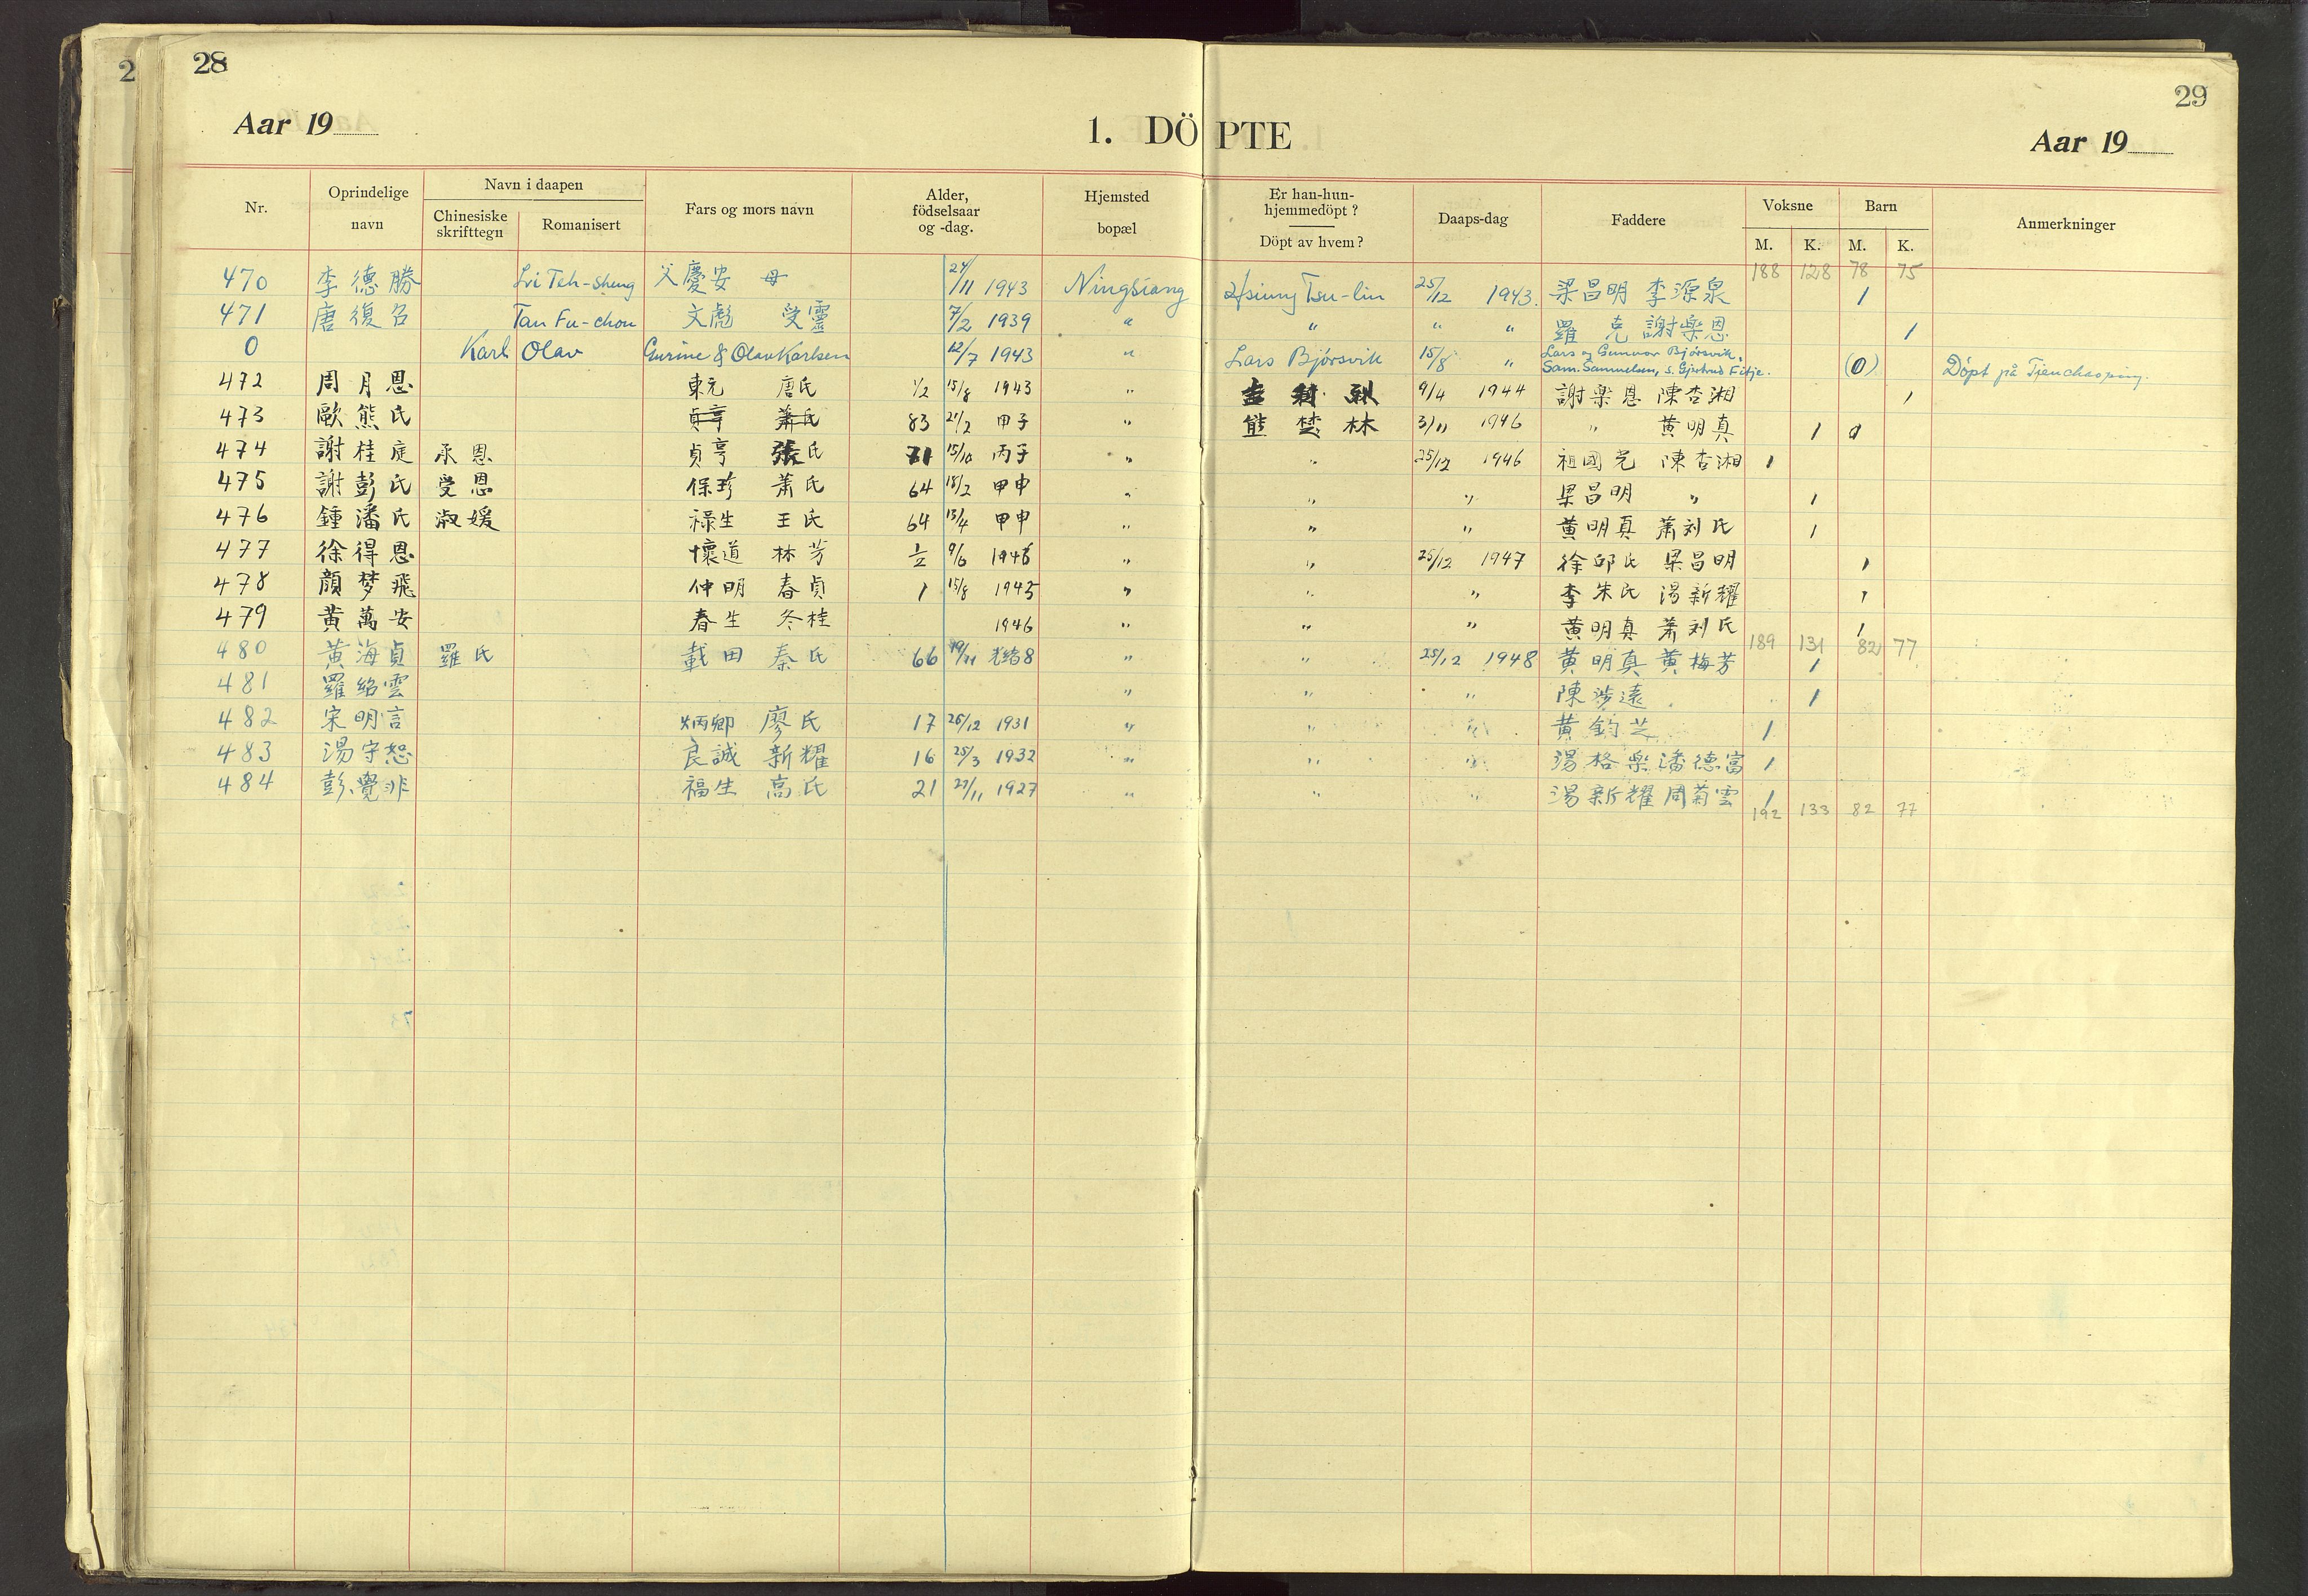 2
28
29
Aar 19
1. DÖPTE
Aar 19
Nr.
Oprindelige navn
Navn i daapen
Chinesiske skrifttegn
Romanisert
Fars og mors navn
Alder, födselsaar og -dag.
Hjemsted bopæl
Er han-hun- hjemmedöpt ?
Döpt av hvem ?
Daaps-dag
Faddere
Voksne
M. K.
Barn
M. K.
Anmerkninger
188 128 78 75
470 李德勝 Li Teh-sheng 父慶安 母 24/11 1943 Ningsiang Hsiung Tsu-lin 25/12 1943. 梁昌明 李源泉 1
471 唐復召 Tan Fu-chou 文彪 受靈 7/2 1939 " " " " 羅 克 謝樂恩 1
0 Karl Olav Gurine & Olav Karlsen 12/7 1943 " Lars Bjørsvik 15/8 " Lars og Gunvor Bjørsvik, Sam. Samuelsen, s. Gjertrud Fitje. (0) Döpt på Tienchaoping.
472 周月恩 東元 唐氏 1/2 15/8 1943 " 9/4 1944 謝樂恩 陳杏湘 1
473 歐熊氏 貞亨 蕭氏 83 21/2 甲子 " 熊楚林 3/11 1946 " 黄明真 1
474 謝桂庭 承恩 貞亨 張氏 71 15/10 丙子 " " 25/12 1946 祖國光 陳杏湘 1
475 謝彭氏 受恩 保珍 蕭氏 64 18/2 甲申 " " " 梁昌明 " 1
476 鍾潘氏 淑媛 祿生 王氏 64 13/4 甲申 " " " 黄明真 蕭刘氏 1
477 徐得恩 懷道 林芳 1/2 9/6 1946 " " 25/12 1947 徐邱氏 梁昌明 1
478 顏梦飛 仲明 春貞 1 15/8 1945 " " " 李朱氏 湯新耀 1
479 黄萬安 春生 冬桂 1946 " " " 黄明真 蕭刘氏 1
189 131 82 77
480 黄海貞 羅氏 載田 秦氏 66 19/11 光緒8 " " 25/12 1948 黄明真 黄梅芳 1
481 羅紹雲 " " " 陳涉遠 1
482 宋明言 炳卿 廖氏 17 26/12 1931 " " " 黄鈞芝 1
483 湯守恕 良誠 新耀 16 25/3 1932 " " " 湯格樂 潘德富 1
484 彭覺非 福生 高氏 21 27/11 1927 " " " 湯新耀 周菊雲 1
192 133 82 77